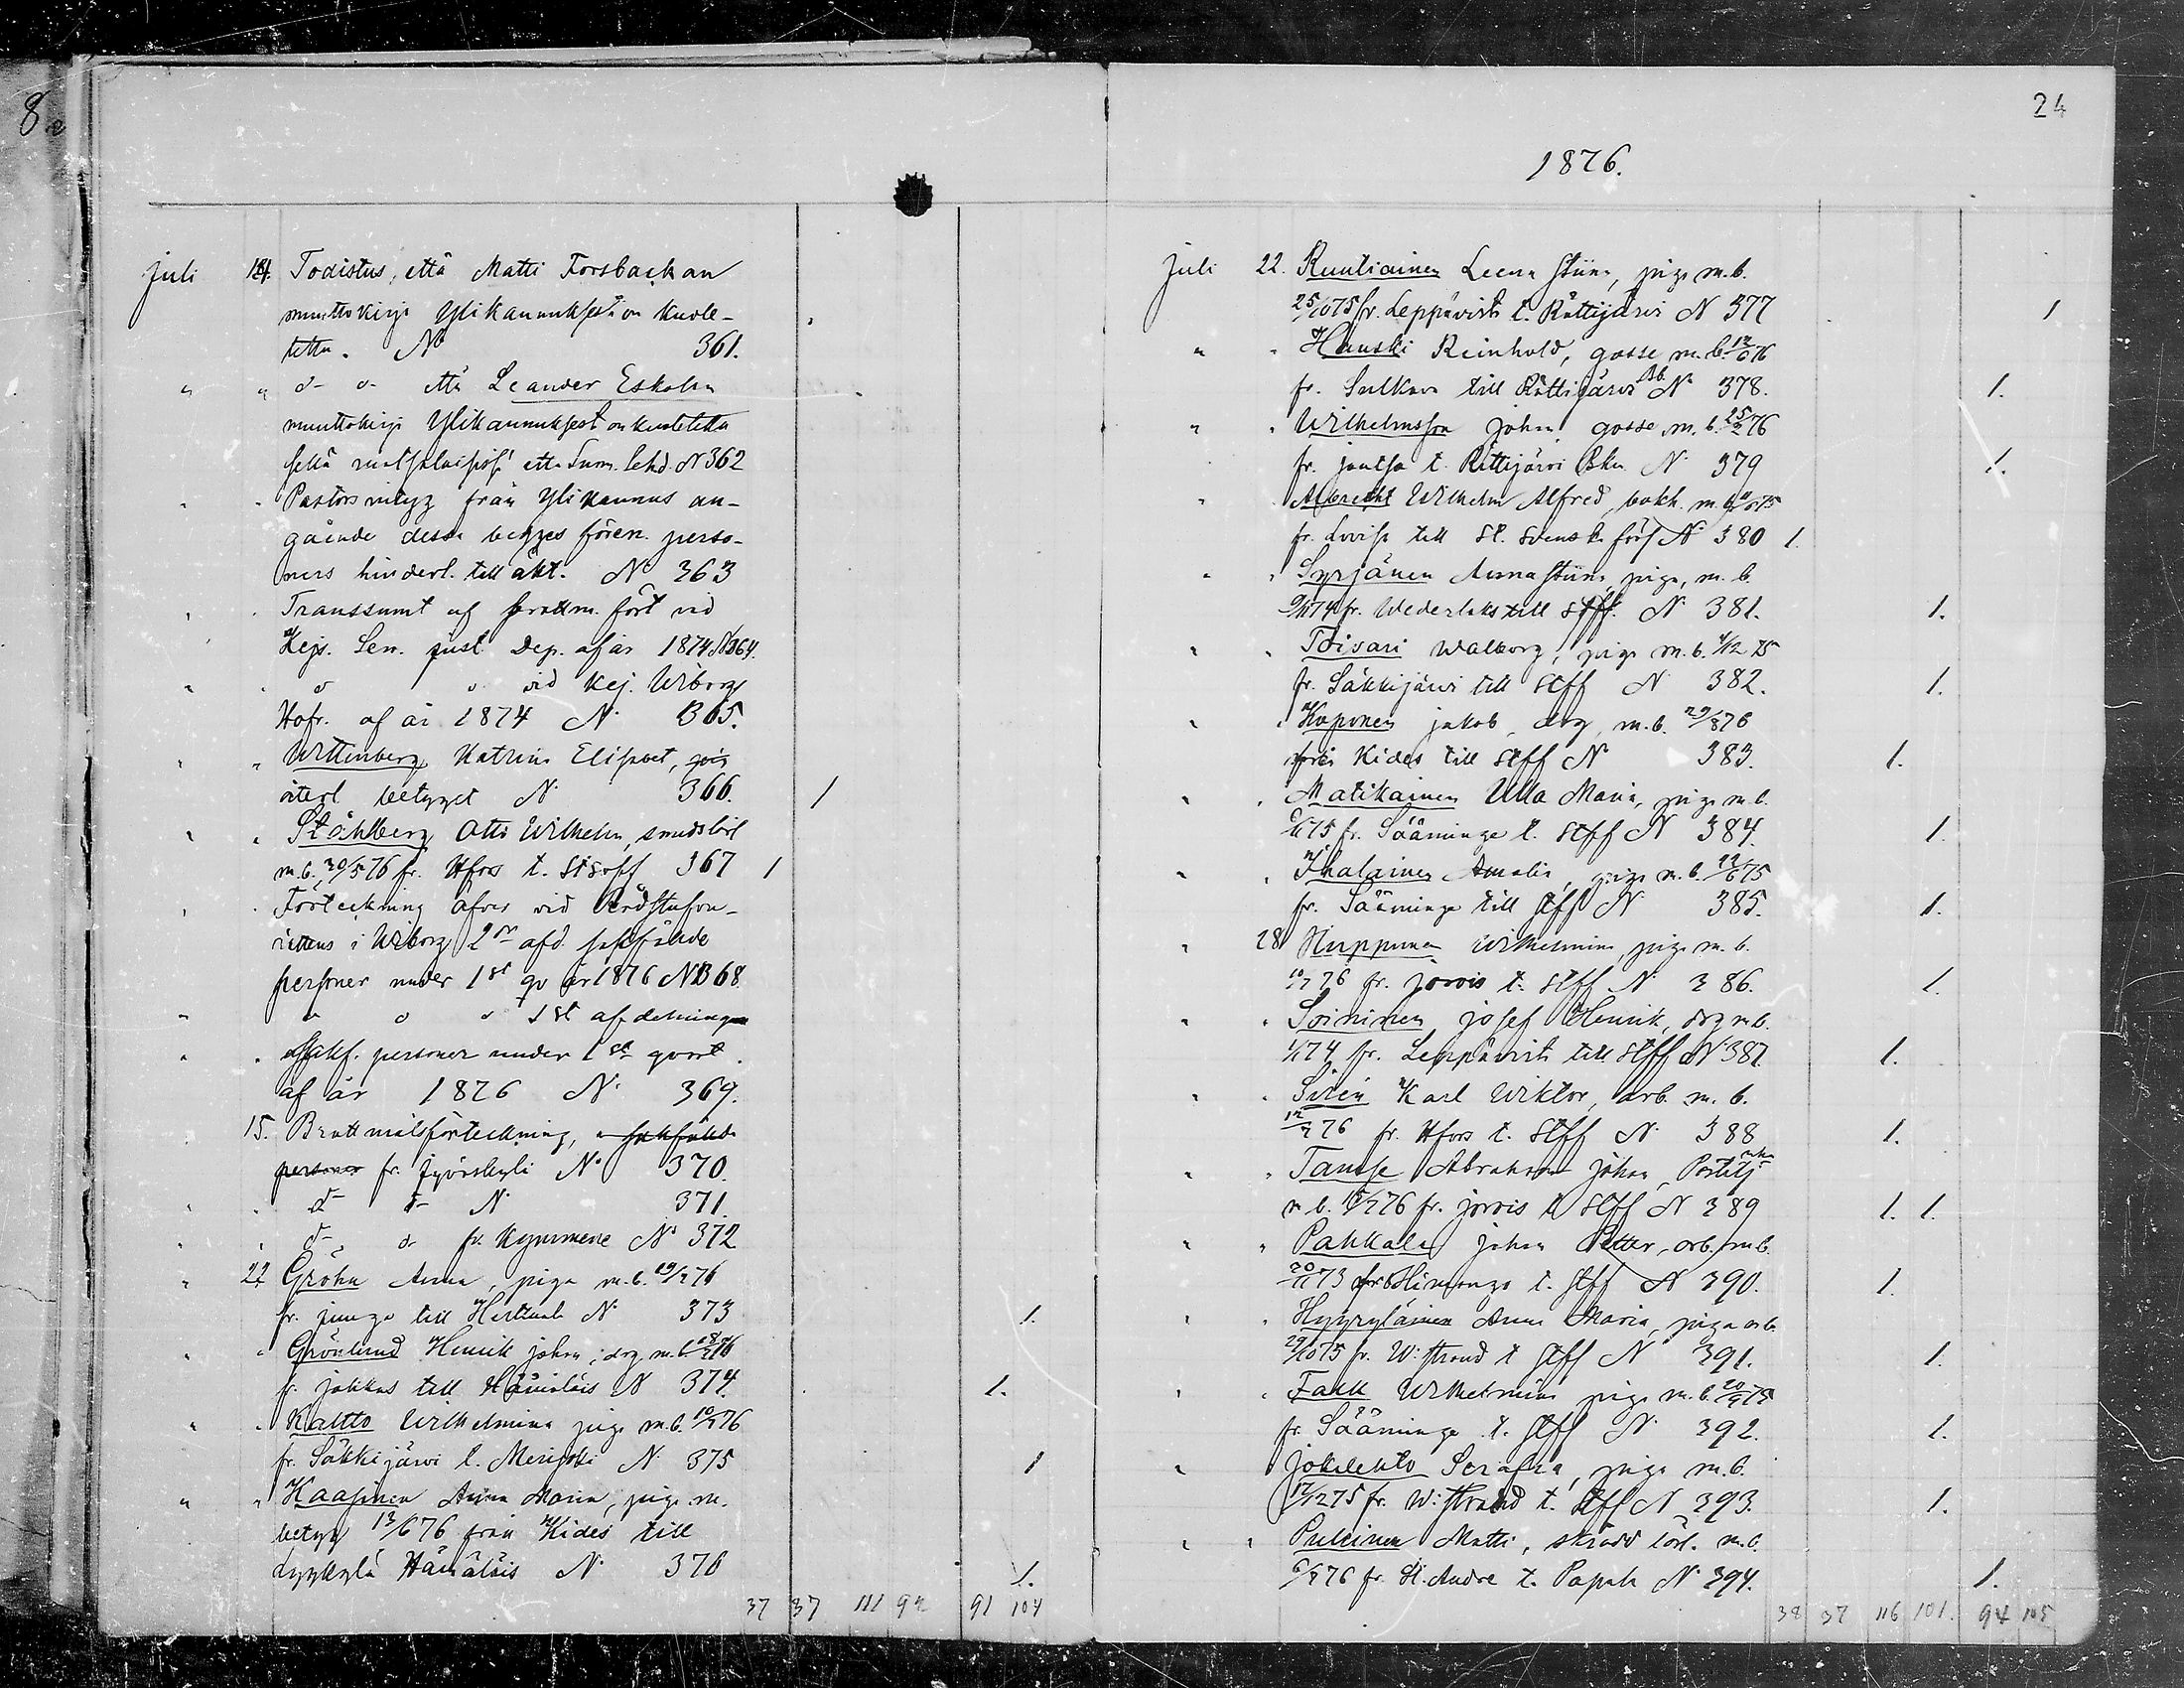 8
24
1876.
Juli 14. Todistus, että Matti Forsbackan
muuttokirja Ylikannuksesta on kuole-
tettu. No 361.
" " d- o- että Leander Eskolan
muuttokirja Ylikannuksest on kuoletettu
362
" " Pastors intyg från Ylikannus an-
gående dessa begges fören. perso-
ners hinderl. till äkt. No 363
" " Transsumt af brottm. fört vid
Kejs. Sen. just. Dep. af år 1874 No 364.
" " d o vid Kej. Wiborgs
Hofr. af år 1874 N. 365.
" " Wittenberg Katrina Elisabet,
återl betyget N. 366. 1
" " Ståhlberg Otto Wilhelm, smedslärl
m.b. 30/5 76 fr. Hfors t. 367 1
" " Förteckning öfver vid Rådstufvu-
rättens i Wiborg 2dra afd. sakfälde
personer under 1st qv år 1876 N 368
" " o o 1st afdelningen
" " sakf. personer under 1st qvart.
af år 1876 N. 369.
15. Brottmålsförteckning, sakfälde
personer fr. Jyväskylä No 370.
" " d- d- N. 371.
" " d- o- fr. Kymmene No 372
" 22 Gröhn Anna, piga m.b. 19/7 76
fr. till N. 373 1.
" " Grönlund Henrik Johan, drg m.b. 76
fr. Jokkas till Hämäläis N 374. 1.
" " Kaltto Wilhelmina piga m.b. 10/7 76
fr. Säkkijärvi t. Merijoki N. 375 1
" " Kaasinen Anna Maria, piga m.
betyg 13/6 76 från Kides till
Lyykylä Hämäläis N. 376 1.
37 37 111 92 91 104
1876.
Juli 22. Ruutiainen Leena Stiina, piga m.b.
25/10 75 fr. Leppävirta t. Rättijärvi N 377 1
" " Hauski Reinhold, gosse m.b. 76
fr. Sulkava till Rättijärvi N. 378. 1.
" " Wilhelmsson Johan gosse m.b. 25/2 76
fr. Jäntsä t. Rättijärvi N. 379 1.
" " Albrecht Wilhelm Alfred, bokh. m.b. 75
fr. Lovisa till St. Svenska förs N. 380 1.
" " Syrjänen Anna Stiina, piga, m.b.
74 fr. Wederlaks till Stff. N. 381. 1.
" " Toisari Walborg, piga m.b. 4/12 75
fr. Säkkijärvi till Stff N. 382. 1.
" " Kaponen Jakob, drg, m.b. 76
från Kides till Stff N. 383. 1.
" " Matikainen Ulla Maria, piga m.b.
75 fr. Sääminge t. Stff N 384. 1.
" " Ihalainen Amalia, piga m.b. 22/6 75
fr. Sääminge till Stff N. 385. 1.
" 28 Huppunen Wilhelmina, piga m.b.
10/7 76 fr. Jorois t. Stff N. 386. 1.
" " Soininen Josef Henrik, drg m.b.
74 fr. Leppävirta till Stff N. 387 1.
" " Sirén Karl Wiktor, arb. m.b.
12/7 76 fr. Hfors t. Stff N. 388 1.
" " Tamse Abraham Johan,
m.b. 76 fr. Jorois t. Stff N 389 1. 1.
" " Pakkala Johan Petter, arb. m.b.
20/11 73 fr Himanga t. Stff N 390. 1.
" " Hyyryläinen Anna Maria, piga m.b.
29/10 75 fr. W:strand t Stff N 391. 1.
" " Falk Wilhelmina piga m.b. 75
fr. Sääminge t. Stff N. 392. 1.
" Jokilehto Serafia, piga m.b.
17/12 75 fr. W:strand t. Stff N 393. 1.
" " Pulkinen Matti, skrädd lärl. m.b.
6/7 76 fr. St. Andre t. Papula N. 394. 1.
38 37 116 101. 94 105